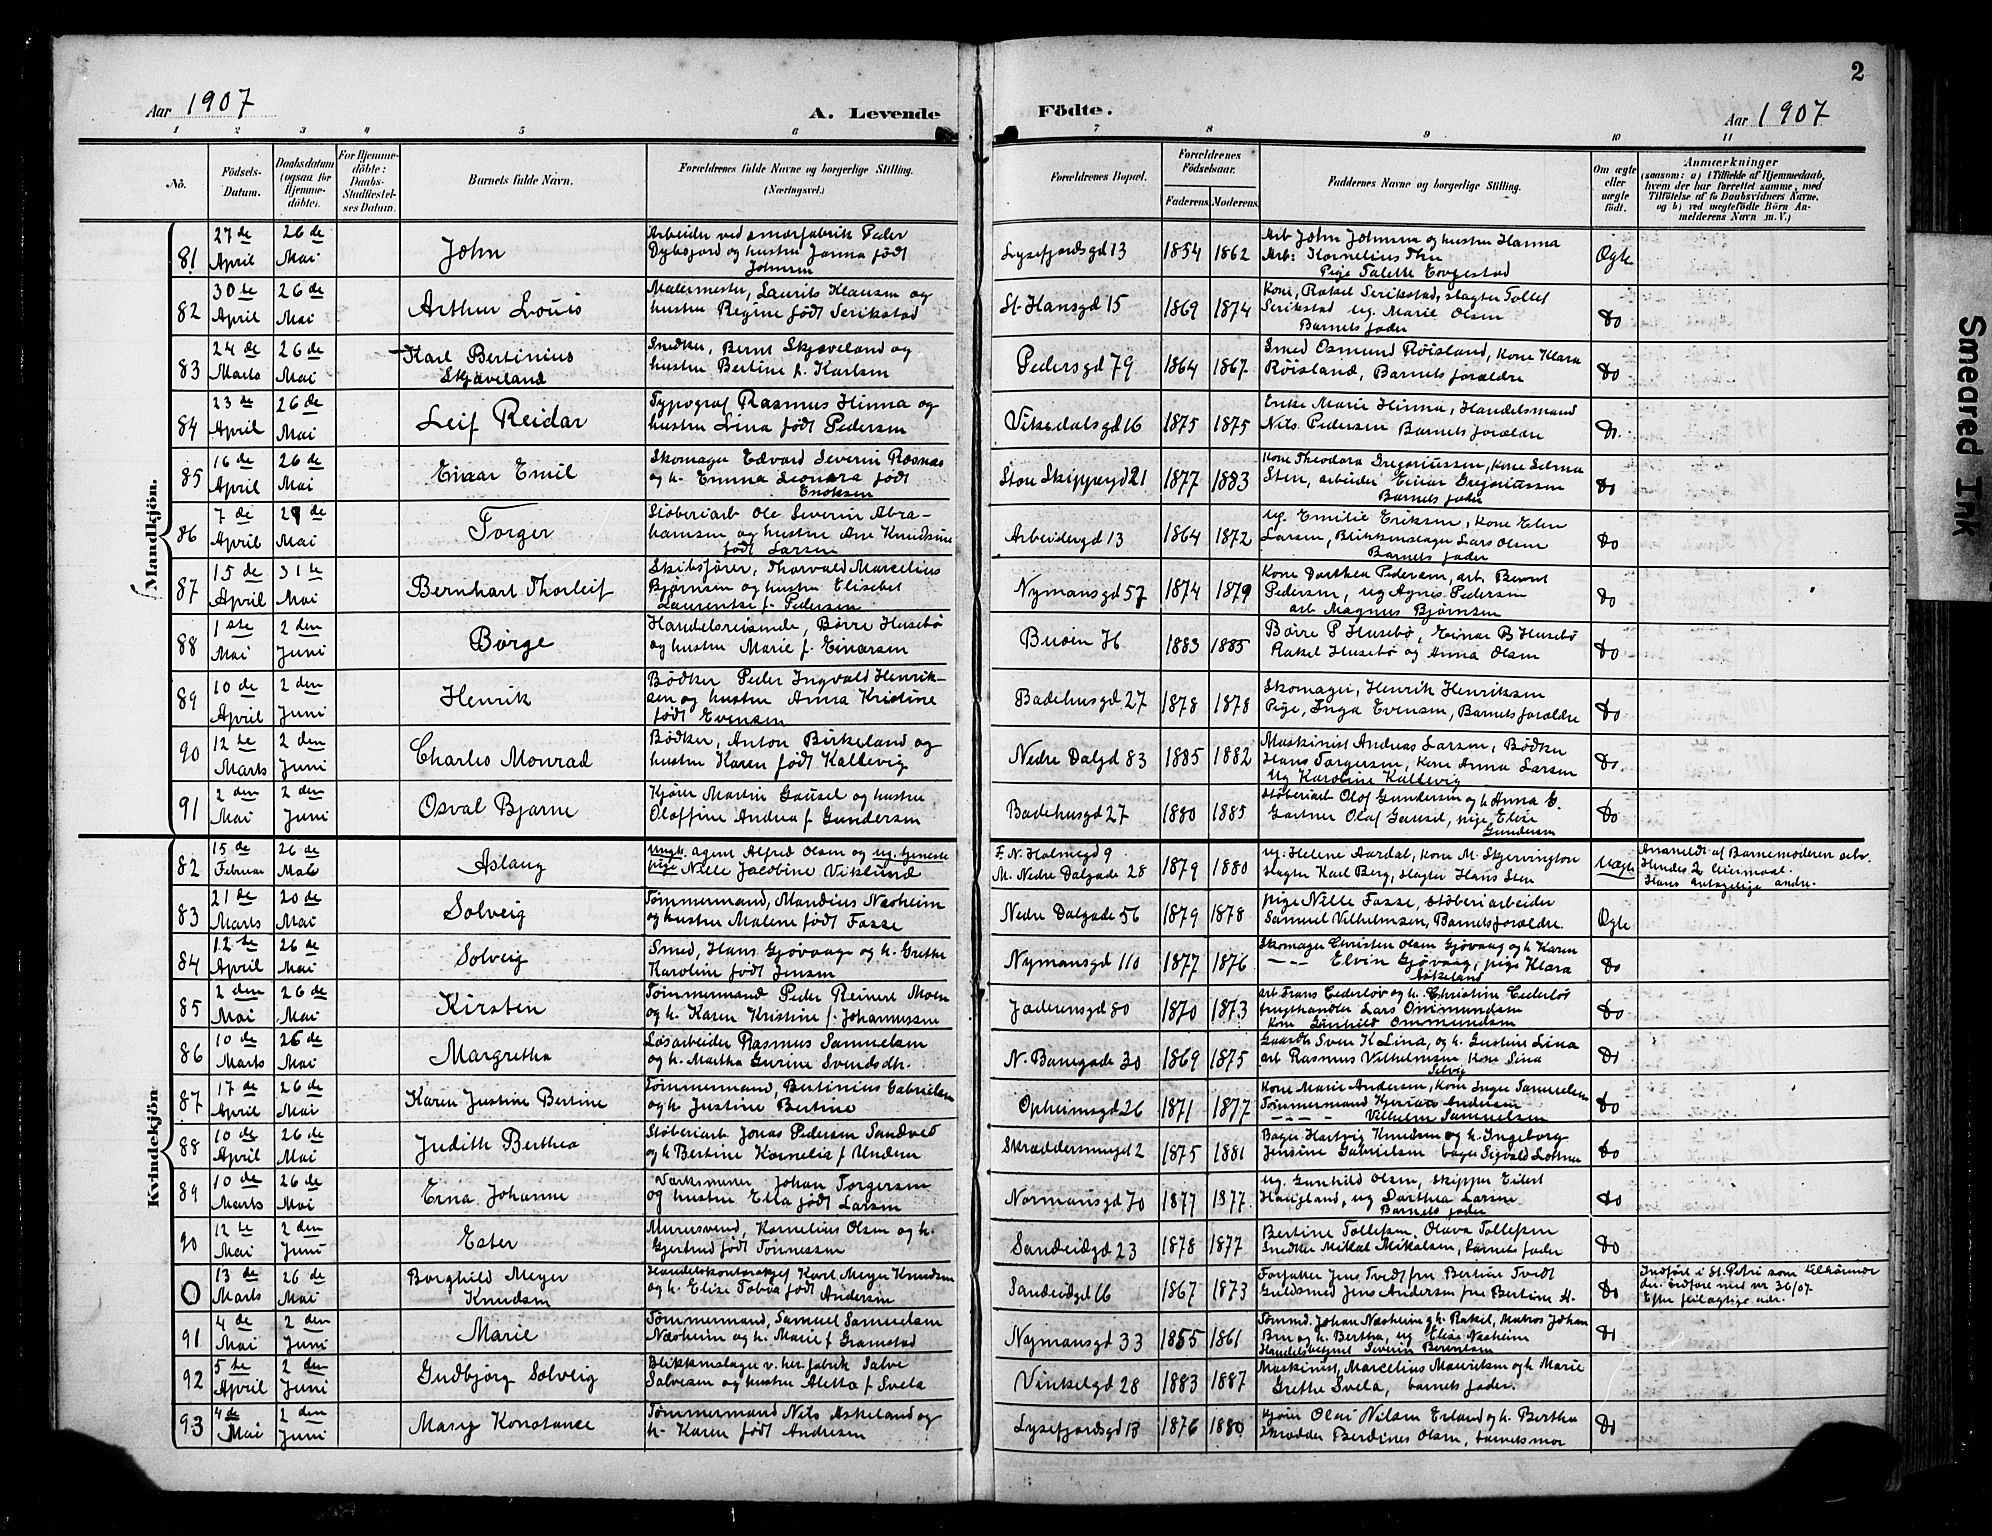 2
Aar 1907 A. Levende Födte. Aar 1907
1 2 3 4 5 6 7 8 9 10 11
No. Födsels-Datum. Daabsdatum (ogsaa for Hjemme-döbte). For Hjemme-döbte: Daabs-Stadfæstel-ses Datum. Barnets fulde Navn. Forældrenes fulde Navne og borgerlige Stilling. (Næringsvei.) Forældrenes Bopæl. Forældrenes Födselsaar. Faderens. Moderens. Faddernes Navne og borgerlige Stilling. Om ægte eller uægte födt. Anmærkninger (saasom: a) i Tilfælde af Hjemmedaab, hvem der har forrettet samme, med Tilföielse af to Daabsvidners Navne, og b) ved uægtefödte Börn An-melderens Navn m. V.)
Mandkjön.
81 27de April 26de Mai John Arbeider ved smørfabrik Peder Dybsjord og hustru Janna født Johnsen Lysefjordsgd 13 1854 1862 Arb John Johnsen og hustru Hanna Arb: Kornelius Pige Talette Ægte
82 30te April 26de Mai Arthur Louis Malermester, Laurits Klausen og hustru Regine født Serikstad St. Hansgd 15 1869 1874 Kone, Rakel Serikstad, slagter Tollef Serikstad ug. Marie Olsen Barnets fader Do
83 24de Marts 26de Mai Karl Bertinius Skjæveland Snedker, Bernt Skjæveland og hustru Bertine f. Karlsen Pedersgd 79 1864 1867 Smed Osmund Røisland, Kone Klara Røisland, Barnets forældre Do
84 23de April 26de Mai Leif Reidar Typograf Rasmus Hinna og hustru Lina født Pedersen Vikedalsgd 16 1875 1875 Enke Marie Hinna, Handelsmand Nils Pedersen Barnets forældre Do
85 16de April 26de Mai Einar Emil Skomager Edvard Severin Ræsnæs og h. Emma Leonara født Enoksen Store Skippergd 21 1877 1883 Kone Theodora Gregoriussen, Kone Selma Sten, arbeider Einar Gregoriussen Barnets fader Do
86 7de April 29de Mai Torger Støberiarb Ole Severin Abrahamsen og hustru Ane Knudsine født Larsen Arbeidergd 13 1864 1872 ug. Emilie Eriksen, Kone Elen Larsen, Blikkenslager Lars Olsen Barnets fader Do
87 15de April 31te Mai Bernhart Thorleif Skibsfører, Thorvald Marcelius Bjørnsen og hustru Elisebet Laurentse f. Pedersen Nymansgd 57 1874 1879 Kone Dorthea Pedersen, arb. Bernt Pedersen, ug Agnis Pedersen arb Magnus Bjørnsen Do
88 1ste Mai 2den Juni Børge Handelsreisende, Børre Husebø og hustru Marie f. Einarsen Buøen 76 1883 1885 Børre P Husebø, Einar B Husebø Rakel Husebø og Anna Olsen Do
89 10de April 2den Juni Henrik Bødker Peder Ingvald Henriksen og hustru Anna Kristine født Evensen Badehusgd 27 1878 1878 Skomager, Henrik Henriksen Pige, Inga Evensen, Barnets forældre Do
90 12te Marts 2den Juni Charles Monrad Bødker, Anton Birkeland og hustru Karen født Kallevig Nedre Dalgd 83 1885 1882 Maskinist Andreas Larsen, Bødker Hans Torgersen, Kone Anna Larsen Ug Karoline Kallevig Do
91 2den Mai 2den Juni Osval Bjarne Kjører Martin Gausel og hustru Oloffine Andrea f Gundersen Badehusgd 27 1880 1885 Støberiarb Olof Gundersen og h Anna G. Gartner Olaf Gausel, pige Elise Gundersen Do
Kvindekjön
82 15de Februar 26de Mai Aslaug Ungk. agent Alfred Olsen og ug. tjeneste pige Nille Jacobine Viklund F. N. Holmegd 9 M. Nedre Dalgade 28 1879 1880 ug. Helene Aardal, Kone M. Skjerrington Slagter Karl Berg, Slagter Hans Sten Uægte Anmeldt af Barnemoderen selv. Hendes 2 leiermaal. Hans andre.
83 21de Marts 20de Mai Solveig Tømmermand, Mandius Næsheim og hustru Malene født Fasse Nedre Dalgade 56 1879 1878 pige Nille Fasse, støberiarbeider Samuel Vilhelmsen, Barnets forældre. Ægte
84 12te April 26de Mai Solveig Smed, Hans Gjøvaag og h. Grethe Karoline født Jensen Nymansgd 110 1877 1876 Skomager Christen Olsen Gjøvaag og h Karen Elvin Gjøvaag, pige Klara Askeland Do
85 2den Mai 26de Mai Kirsten Tømmermand Peder Reinert Moen og h. Karen Kristine f. Johannessen Jaderensgd 80 1870 1873 arb Frans Cederløv og h. Christine Cederløv frugthandler Lars Ommundsen Kone Gunhild Ommundsen Do
86 10de Marts 26de Mai Margretha Løsarbeider Rasmus Samuelsen og h. Martha Gurine Svendsdtr. N. Banegade 30 1869 1875 Gaardbr Sven K Lina, og h. Gustine Lina arb Rasmus Vilhelmsen Kone Sina Selvig Do
87 17de April 26de Mai Karen Justine Bertine Tømmermand, Bertinius Gabrielsen og h Justine Bertine Opheimsgd 26 1871 1877 Kone Marie Andersen, Kone Inger Samuelsen Tømmermand Andersen Vilhelm Samuelsen Do
88 10de April 26de Mai Judith Berthea Støberiarb. Jonas Pedersen Sandved og h Bertine Kornelia f Undem Skræddersmugd 2 1875 1881 Bager Hartvig Knudsen og h. Ingeborg Jensine Gabrielsen bager Sigvald Do
89 10de Marts 26de Mai Erna Johanne Værksmester Johan Torgersen og hustru Ella født Larsen Normansgd 70 1877 1877 ug. Gunhild Olsen, skipper Eilert Haugland, ug Dorthea Larsen Barnets fader Do
90 12te Mai 2den Juni Ester Murersvend, Kornelius Olsen og h. Gjertrud født Tønnessen Sandeidgd 23 1878 1877 Bertine Tollefsen, Olava Tollefsen Snedker Mikal Mikalsen, barnets fader Do
O 13de Marts 26de Mai Borghild Meyer Knudsen Handelskontorchef Karl Meyer Knudsen og h. Elise Tobia født Andersen Sandeidgd 16 1867 1873 Forfatter Jens Tvedt fru Bertine Tvedt Guldsmed Jens Andersen fru Bertine A. Do Indført i St. Petri som tilhørende der. indført med nr 36/07. Efter feilagtige adr.
91 4de Mai 2den Juni Marie Tømmermand, Samuel Samuelsen Næsheim og h. Marie f Gramstad Nymansgd 33 1855 1861 Tømmd. Johan Næsheim og h Rakel, Matros Johan Bru og h. Bertha, ug Elise Næsheim Handelsbetjent Severin Berentsen Do
92 5te April 2den Juni Gudbjørg Solveig Blikkenslager v. her. fabrik Salve Salvesen og hustru Aletta f Svela Vinkelgd 28 1883 1887 Maskinist, Marcelius Mauritsen og h Marie Grethe Svela, barnets fader. Do
93 4de Mai 2den Juni Mary Konstance Tømmermand Nils Askeland og h. Karen født Andresen Lysefjordsgd 13 1876 1880 kjører Olai Nilsen Erland og h. Bertha Skrædder Berdines Olsen, barnets mor Do
Smeared Ink